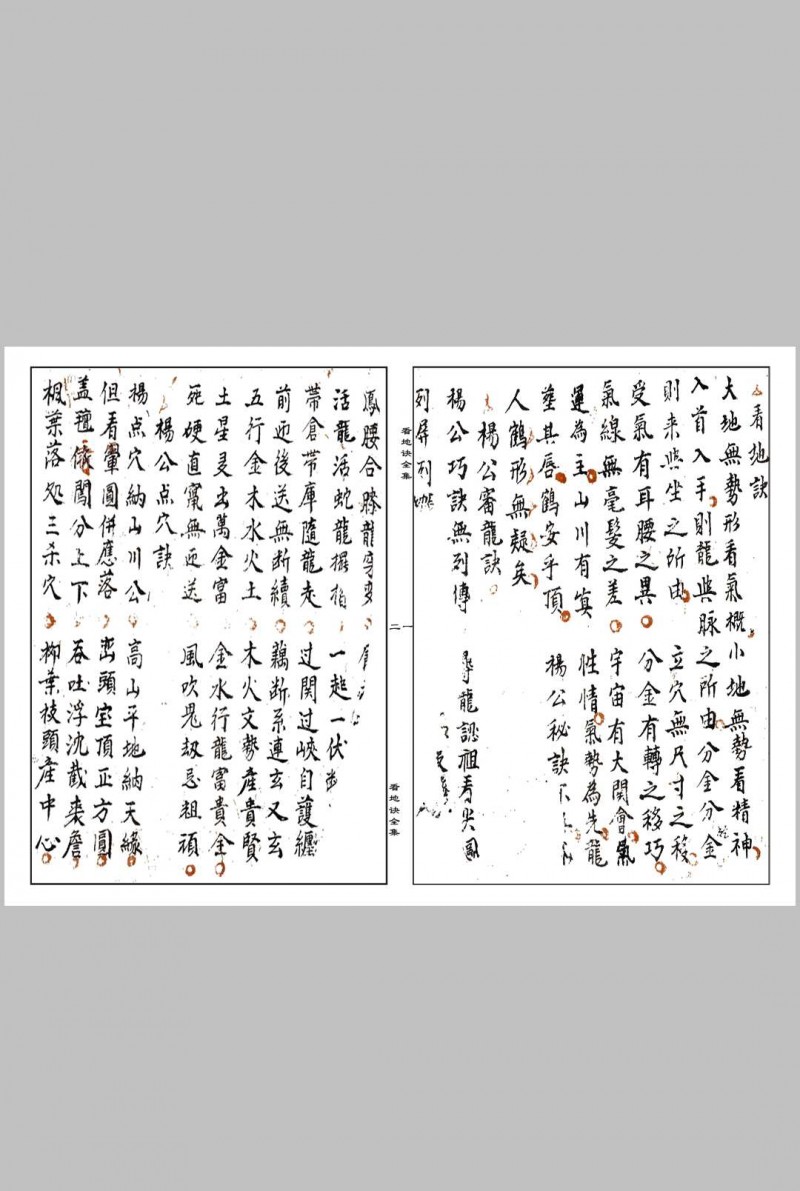 看地訣
大地無勢形看氣概小地無勢看精神
入首入手則龍與脉之所由分金分金
則来與坐之所由 立穴無尺寸之移
受氣有耳腰之異 分金有轉之移巧
氣線無毫髮之差 宇宙有大関會氣
運為主山川有真 性情氣勢為先龍
塋其唇鶴安乎頂 楊公秘訣不
人鶴形無疑矣
楊公審龍訣
楊公巧訣無列傳 尋龍認祖看尖圓
列屏列
看地诀全集
一
二
看地诀全集
鳳腰合 龍穿
活龍活蛇龍擺 一起一伏
帶倉帶庫隨龍走 过関过峽自護纏
前迎後送無断續 藕断系連玄又玄
五行金木水火土 木火文勢產貴賢
土星灵出萬金富 金水行龍富貴全
死硬直窜無迎送 風吹鬼劫忌粗頑
楊公点穴訣
楊点穴納山川公 高山平地納天緣
但看暈圓併應落 巒頭宝頂正方圓
盖 倚閣分上下 吞吐浮沈截簷
楓葉落処三杀穴 柳葉枝頭產中心